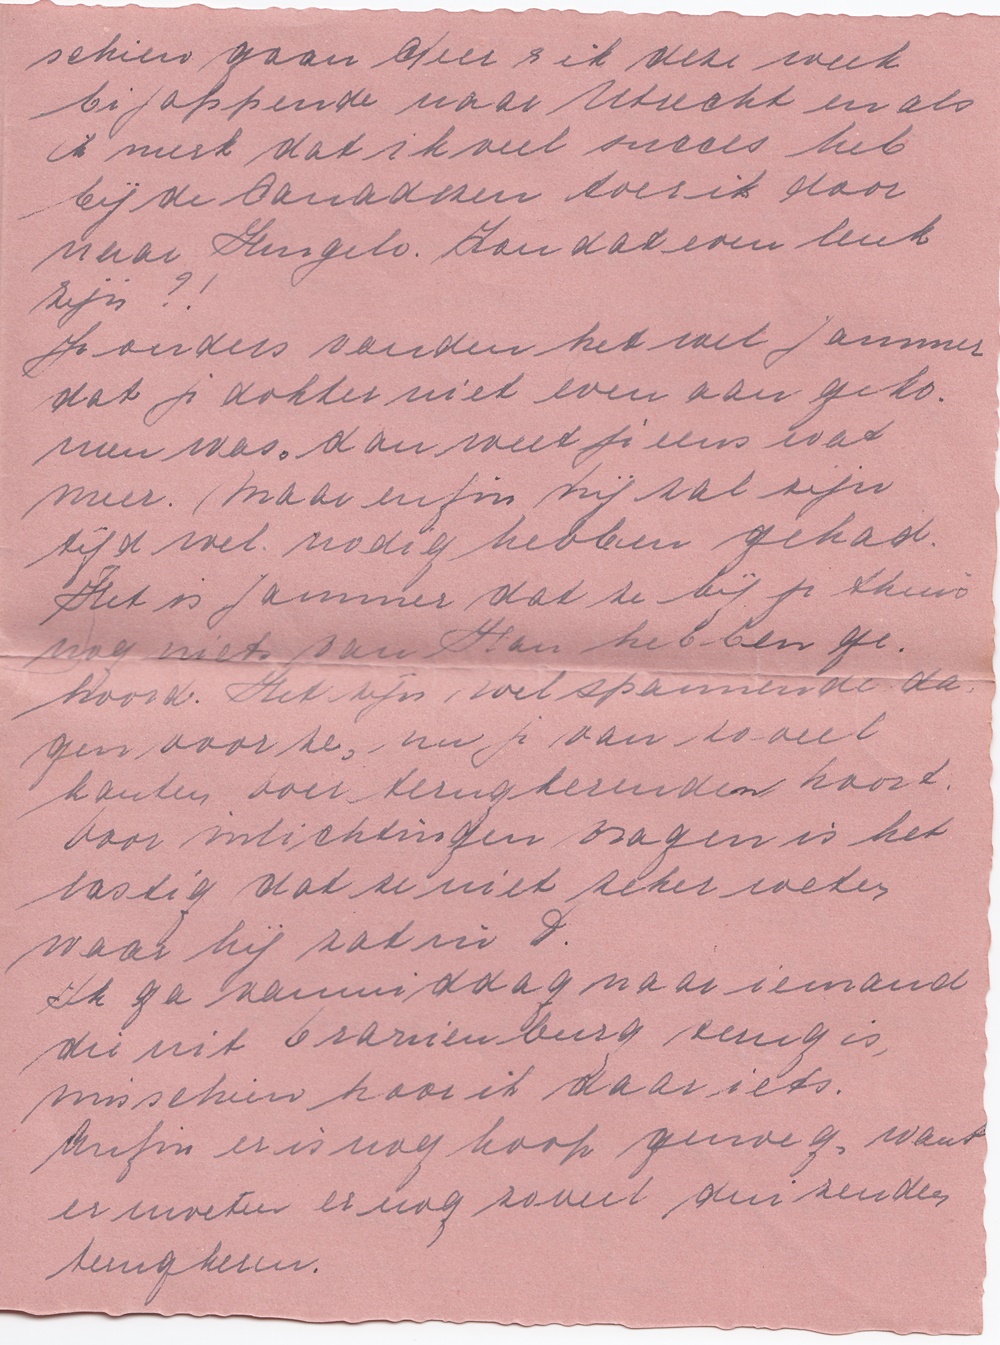 schien gaan Cleer s ik deze week
bij appende naar Utrecht en als
ik merk dat ik veel succes heb
bij de Canadezen toer ik door
naar Hengelo. Zou dat even leuk
zijn ?!
Je ouders vonden het wel jammer
dat je dokter niet even aan geko-
men was. dan weet je eens wat
meer. Maar enfin hij zal zijn
tijd wel nodig hebben gehad.
Het is jammer dat ze bij je thuis
nog niets van Han hebben ge-
hoord. Het zijn wel spannende da-
gen voor ze, nu je van zoveel
kanten over terugkerenden hoort.
Voor inlichtingen vragen is het
lastig dat ze niet zeker weten
waar hij zat in D.
Ik ga vanmiddag naar iemand
die uit Oranienburg terug is,
misschien hoor ik daar iets.
Enfin er is nog hoop genoeg, want
er moeten er nog zoveel duizenden
terugkeren.